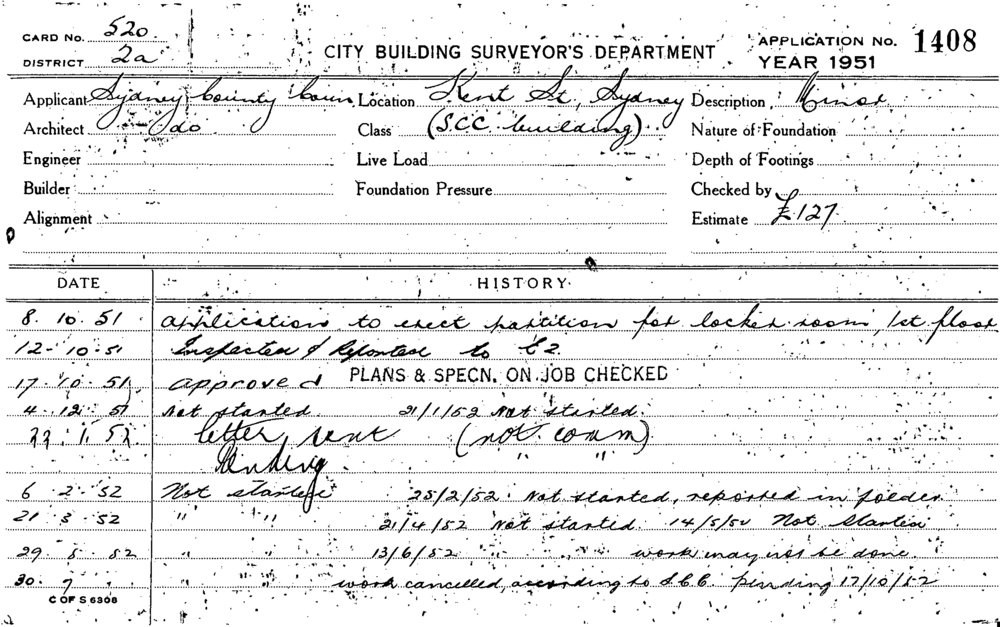 CARD No. 520.
DISTRICT 2a
CITY BUILDING SURVEYOR'S DEPARTMENT
APPLICATION No. 1408
YEAR 1951
Applicant Sydney County Coun Location Kent St, Sydney Description Minor
Architect do Class (S.C.C. building) Nature of Foundation
Engineer Live Load Depth of Footings
Builder Foundation Pressure Checked by
Alignment Estimate £127
DATE HISTORY
8. 10. 51 Application to erect partition for locker room, 1st floor
12. 10. 51 Inspected & Reported to E2.
17. 10. 51 approved PLANS & SPECN. ON JOB CHECKED
4. 12. 51 Not started 21/1/52 Not started.
22. 1. 52 letter sent (not comm)
Pending " "
6 2. 52 Not started 25/2/52. Not started, reported in folder
21 3. 52 " " 21/4/52 Not started. 14/5/52 Not Started
29. 5. 52 " " 13/6/52 " " work may not be done.
30. 7 " work cancelled, according to S.C.C. Pending 17/10/52
C OF S 6308